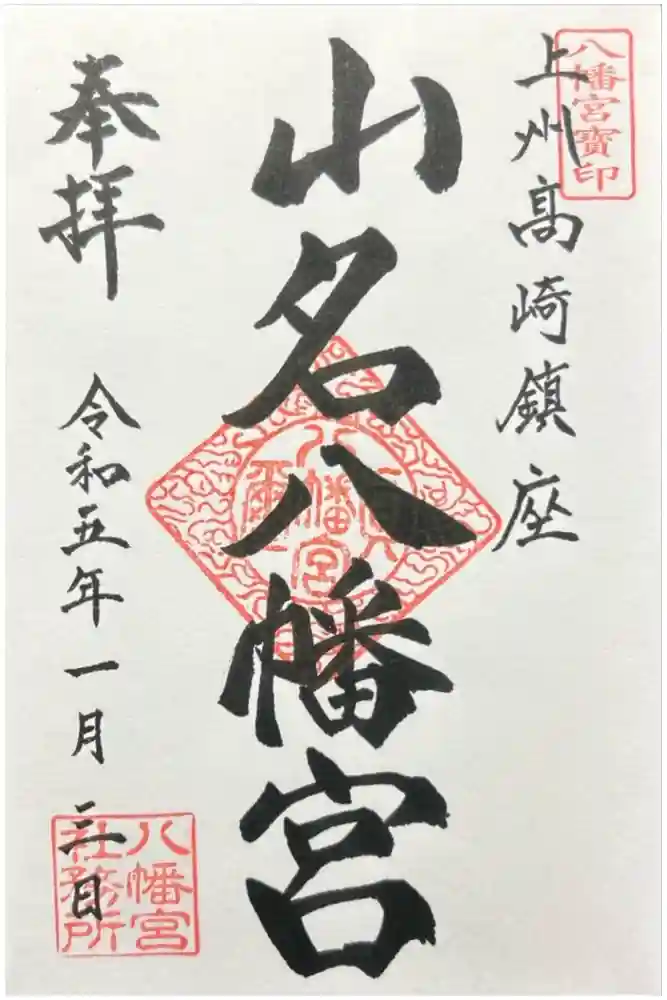 八幡宮寳印
上州高崎鎮座
山名八幡宮
八幡宮
奉拝
令和五年一月三日
八幡宮
社務所